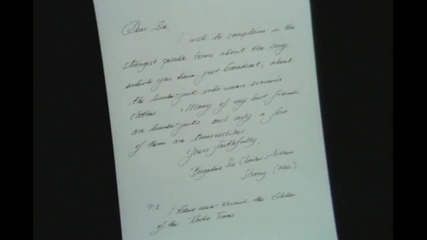 Dear Sir,
I wish to complain in the
strongest possible terms about the song
which you have just broadcast, about
the lumber-jack who wears women's
clothes. Many of my best friends
are lumber-jacks and only a few
of them are transvestites.
Yours faithfully,
Brigadier Sir Charles Arthur
Strong (Mrs)
P.S. I have never kissed the Editor
of the Radio Times